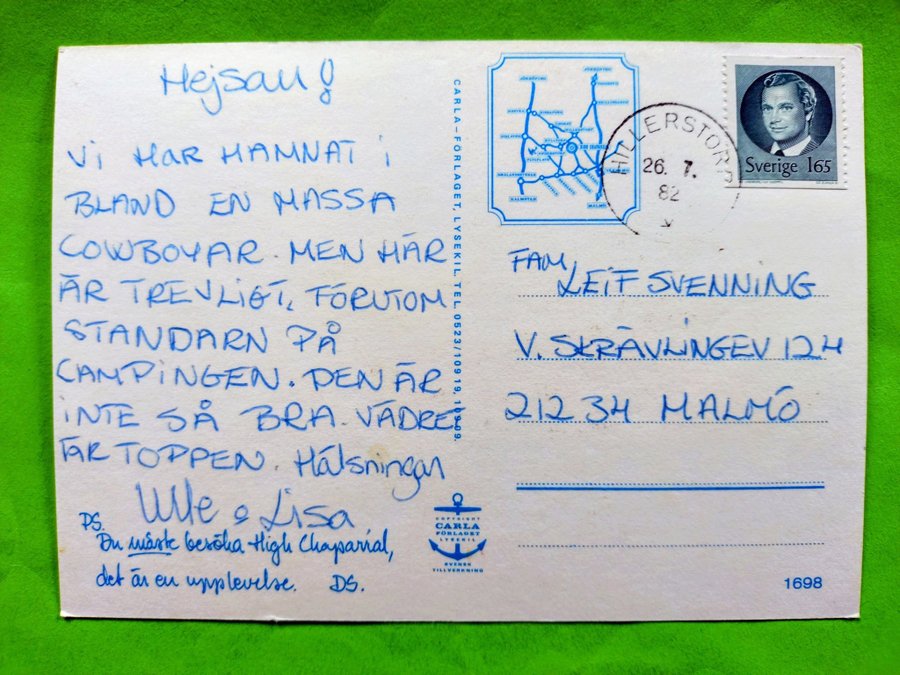 Hejsan!
Vi HAR HAMNAT i
BLAND EN MASSA
COWBOYAR. MEN HÄR
ÄR TREVLIGT, FÖRUTOM
STANDARN PÅ
CAMPiNGEN. DEN ÄR
iNTE SÅ BRA. VÄDRET
ÄR TOPPEN. Hälsningar
Ulle o Lisa
DS.
Du måste besöka High Chaparral,
det är en upplevelse. DS.
CARLA-FÖRLAGET, LYSEKIL, TEL. 0523/109 19, 109 09.
COPYRIGHT
CARLA
FÖRLAGET
LYSEKIL
SVENSK
TILLVERKNING
HALMSTAD
MALMÖ
HILLERSTORP
26. 7.
82
Sverige 165
FAM
LEIF SVENNING
V. SKRÄVLINGEV 124
212 34 MALMÖ
1698